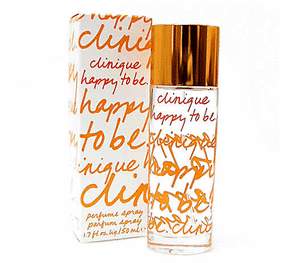 clinique
clinique
happy to be.
happy
to be.
inique
clini
perfume spray
parfum spray
1.7 fl.oz.liq/50ml e
clinique
happy to be.
clinique
happy
to be.
clinic